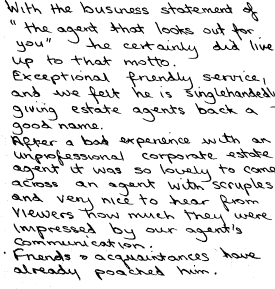 With the business statement of
"the agent that looks out for
you" he certainly did live
up to that motto.
Exceptional friendly service,
and we felt he is singlehandedly
giving estate agents back a
good name.
After a bad experience with an
unprofessional corporate estate
agent it was so lovely to come
across an agent with scruples
and very nice to hear from
viewers how much they were
impressed by our agent's
communication.
Friends & acquaintances have
already poached him.